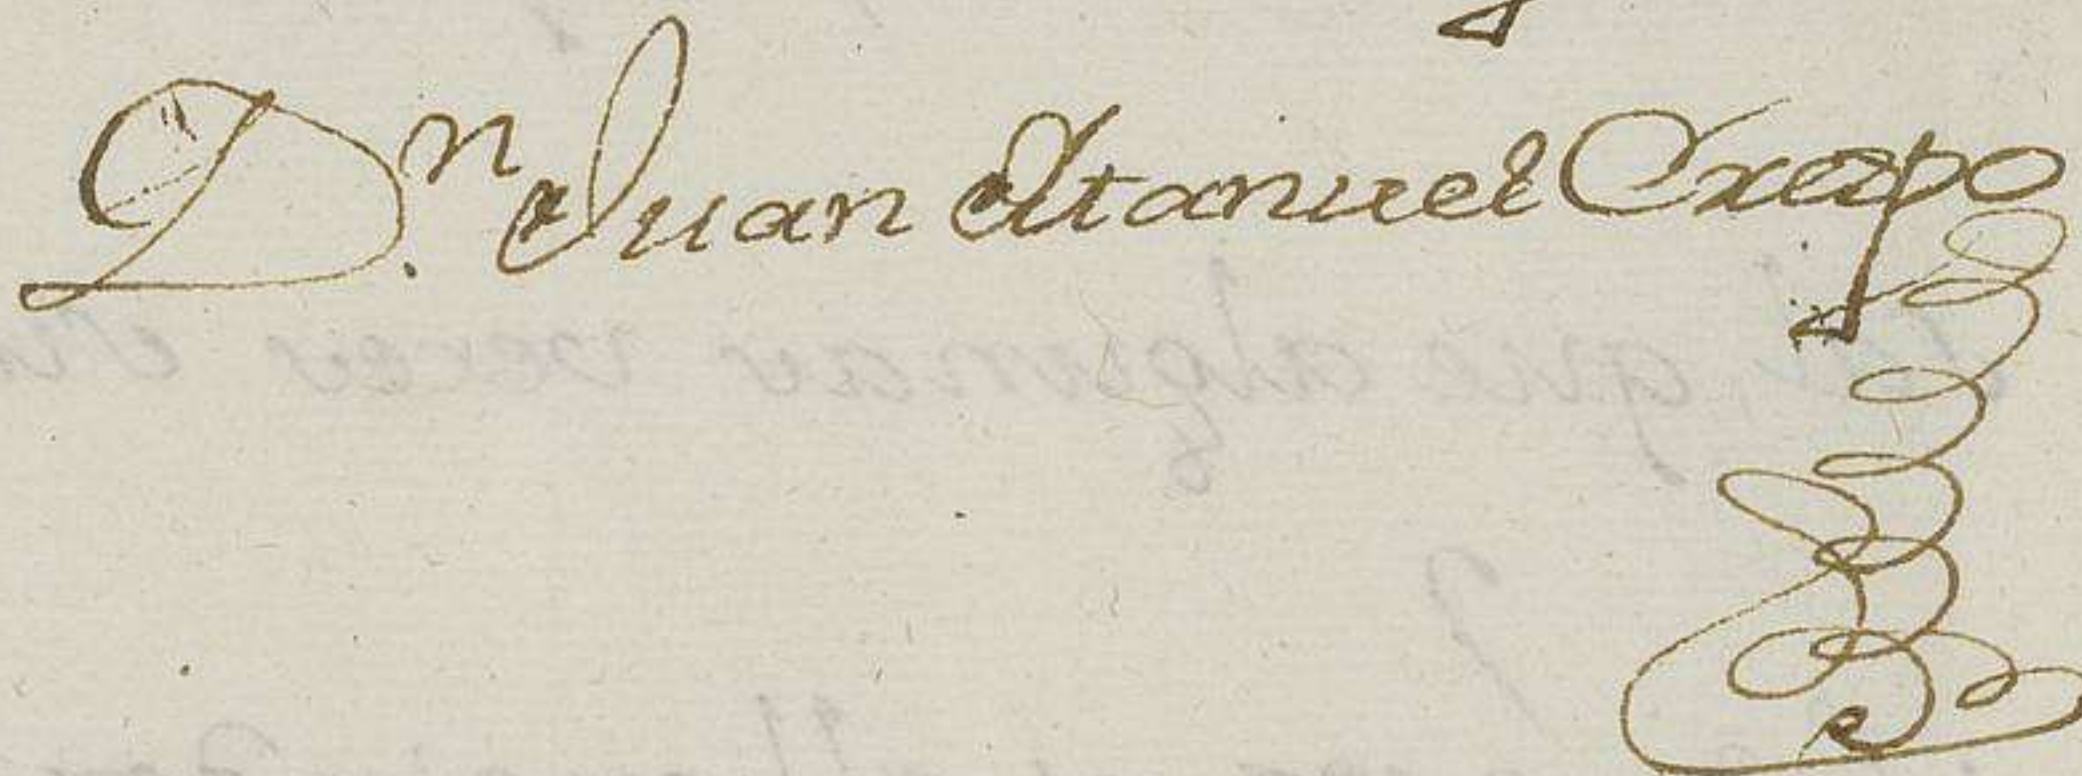 Dn. Juan Manuel Crespo